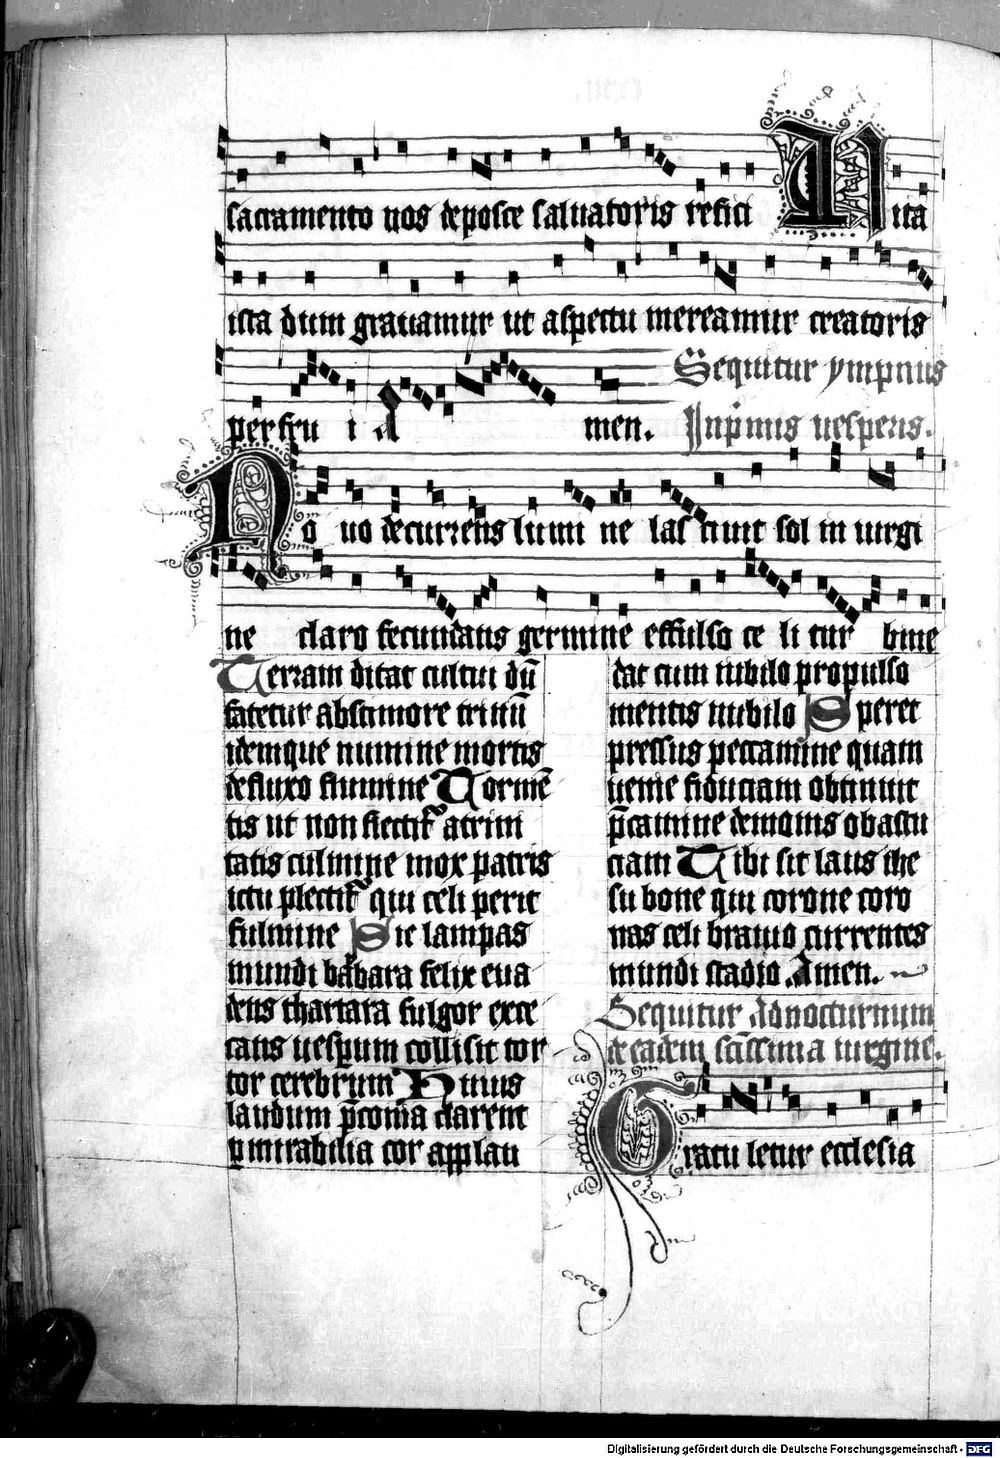 sacramento nos deposce saluatoris refici Uita
ista dum grauamur ut aspectu mereamur creatoris
perfrui Amen. Sequitur ympnus
In primus uesperis.
Nouo decurrens lumine lasciuit sol in uirgi
ne claro fecundans germine effulso celi turbine
Terram ditat cultui dn̄
fatetur absc timore trinū
idemque numine mortis
defluxo flumine Tormē
tis ut non flectitᷣ a trini
tatis culmine mox patris
ictu plectitᷣ qui celi perit
fulmine Sic lampas
mundi barbara felix eua
dens thartara fulgor exce
cans uesperum collisit tor
tor cerebrum Huius
laudum p̄conia clarent
ꝑ mirabilia cor applau
dat cum iubilo propulso
mentis nubilo Speret
pressus peccamine quam
ueme fiduciam obtinuit
p̄camine demonis obastu
ciam Tibi sit laus ihe
su bone qui corone coro
nas celi brauio currentes
mundi stadio Amen.
Sequitur Ad nocturnum
de eadem sc̄issima uirgine.
Gratuletur ecclesia
Digitalisierung gefördert durch die Deutsche Forschungsgemeinschaft - DFG